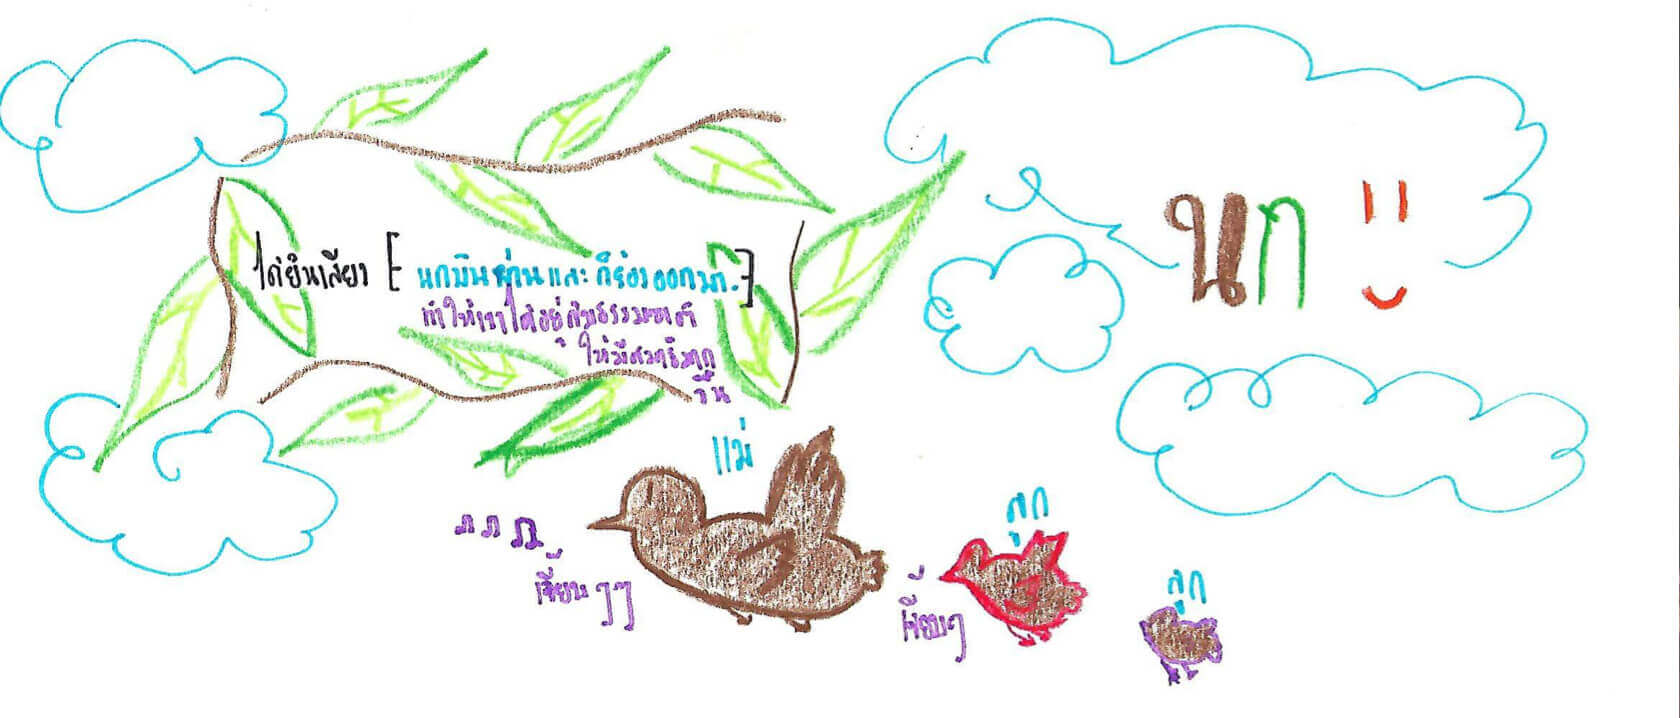 นก
ได้ยินเสียง [ นกบินผ่านและก็ร้องออกมา. ]
ทำให้เราได้อยู่กับธรรมชาติ
ให้มีความสุขทุก
วัน
แม่
ลูก
ลูก
เจี๊ยบๆ